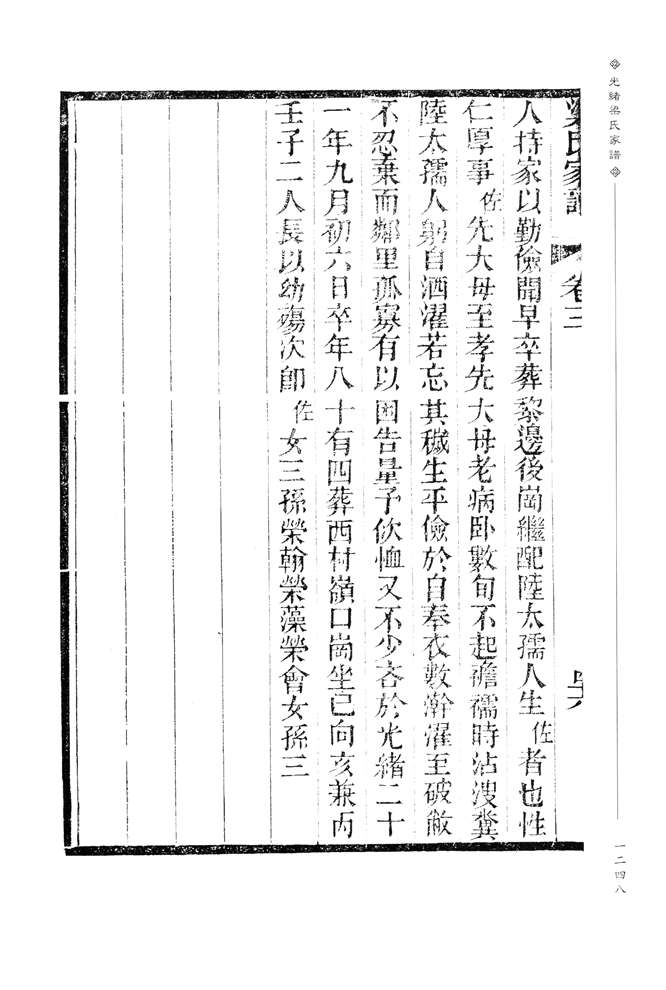 光緒梁氏家譜
一二四八
梁氏家譜 卷三
人持家以勤儉聞早卒葬黎邊後崗繼配陸太孺人生佐者也性
仁厚事佐先大母至孝先大母老病卧數旬不起襜襦時沾溲糞
陸太孺人躬自洒濯若忘其穢生平儉於自奉衣數澣濯至破敝
不忍棄而鄰里孤寡有以困告量予佽恤又不少吝於光緒二十
一年九月初六日卒年八十有四葬西村嶺口崗坐巳向亥兼丙
壬子二人長以幼殤次即佐女三孫榮翰榮藻榮會女孫三